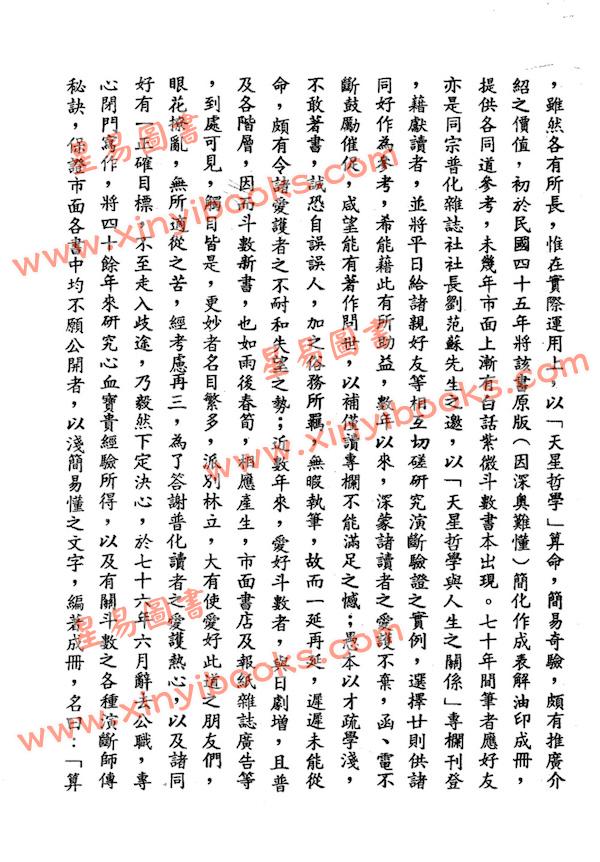 ,雖然各有所長,惟在實際運用上,以「天星哲學」算命,簡易奇驗,頗有推廣介
紹之價值,初於民國四十五年將該書原版(因深奧難懂)簡化作成表解油印成冊,
提供各同道參考,未幾年市面上漸有白話紫微斗數書本出現。七十年間筆者應好友
亦是同宗普化雜誌社社長劉范蘇先生之邀,以「天星哲學與人生之關係」專欄刊登
,藉獻讀者,並將平日給諸親好友等相互切磋研究演斷驗證之實例,選擇廿則供諸
同好作為參考,希能藉此有所助益,數年以來,深蒙諸讀者之愛護不棄,函、電不
斷鼓勵催促,咸望能有著作問世,以補僅讀專欄不能滿足之憾;愚本以才疏學淺,
不敢著書,誠恐自誤誤人,加之俗務所羈,無暇執筆,故而一延再延,遲遲未能從
命,頗有令諸愛護者之不耐和失望之勢;近數年來,愛好斗數者,與日劇增,且普
及各階層,因而斗數新書,也如雨後春筍,相應產生,市面書店及報紙雜誌廣告等
,到處可見,觸目皆是,更妙者名目繁多,派別林立,大有使愛好此道之朋友們,
眼花撩亂,無所適從之苦,經考慮再三,為了答謝普化讀者之愛護熱心,以及諸同
好有一正確目標,不至走入歧途,乃毅然下定決心,於七十六年六月辭去公職,專
心閉門寫作,將四十餘年來研究心血寶貴經驗所得,以及有關斗數之各種演斷師傳
秘訣,保證市面各書中均不願公開者,以淺簡易懂之文字,編著成冊,名曰:「算
星易圖書
www.xinyibooks.com
星易圖書
www.xinyibooks.com
星易圖書
www.xinyibooks.com